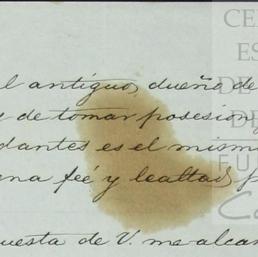 l antiguo, dueño de
de tomar posesion
dantes es el mism
ena feé y lealtad, p
uesta de V. me alcan
CE
ES
DE
DE
FU
Ca